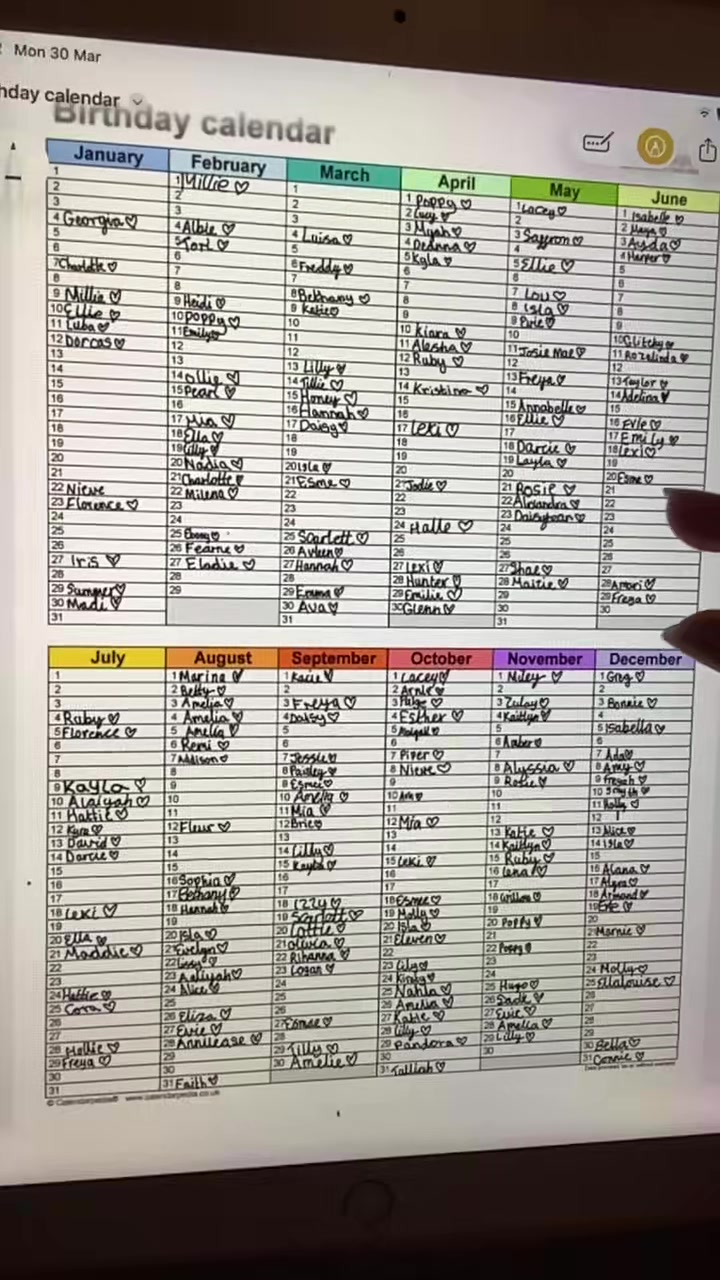 Mon 30 Mar
hday calendar
Birthday calendar
January
1
2
3
4 Georgia ♡
5
6
7 Charlotte ♡
8
9 Millie ♡
10 Ellie ♡
11 Luba ♡
12 Dorcas ♡
13
14
15
16
17
18
19
20
21
22 Nieve
23 Florence ♡
24
25
26
27 Iris ♡
28
29 Summer ♡
30 Madi ♡
31
February
1 Millie ♡
2
3
4 Albie ♡
5 Tori ♡
6
7
8
9 Heidi ♡
10 Poppy ♡
11 Emily ♡
12
13
14 Ollie ♡
15 Pearl ♡
16
17 Mia ♡
18 Ella ♡
19 Lilly ♡
20 Nadia ♡
21 Charlotte ♡
22 Milena ♡
23
24
25 Ebony ♡
26 Fearne ♡
27 Elodie ♡
28
29
March
1
2
3
4 Luisa ♡
5
6 Freddy ♡
7
8 Bethany ♡
9 Katie ♡
10
11
12
13 Lilly ♡
14 Tillie ♡
15 Honey ♡
16 Hannah ♡
17 Daisy ♡
18
19
20 Isla ♡
21 Esme ♡
22
23
24
25 Scarlett ♡
26
27 Hannah ♡
28
29 Emma ♡
30 Ava ♡
31
April
1 Poppy ♡
2 Lucy ♡
3 Myah ♡
4 Deanna ♡
5 Kyla ♡
6
7
8
9
10 Kiara ♡
11 Alesha ♡
12 Ruby ♡
13
14 Kristina ♡
15
16
17 Lexi ♡
18
19
20
21 Jodie ♡
22
23
24 Halle ♡
25
26
27 Lexi ♡
28 Hunter ♡
29 Emilie ♡
30 Glenn ♡
May
1 Lacey ♡
2
3 Saffron ♡
4
5 Ellie ♡
6
7 Lou ♡
8 Isla ♡
9 Evie ♡
10
11 Josie Mae ♡
12
13 Freya ♡
14
15 Annabelle ♡
16 Ellie ♡
17
18 Darcie ♡
19 Layla ♡
20
21 Rosie ♡
22 Alexandra ♡
23
24
25
26
27 Shae ♡
28 Maisie ♡
29
30
31
June
1 Isabelle ♡
2 Maya ♡
3 Ayda ♡
4 Harper ♡
5
6
7
8
9
10 Glitchy ♡
11 Rozalinda ♡
12
13 Taylor ♡
14 Adelina ♡
15
16 Evie ♡
17 Emily ♡
18 Lexi ♡
19
20 Esme ♡
21
22
23
24
25
26
27
28 Amari ♡
29 Freya ♡
30
July
1
2
3
4 Ruby ♡
5 Florence ♡
6
7
8
9 Kayla ♡
10 Alaiyah ♡
11 Hattie ♡
12 Kyra ♡
13 David ♡
14 Darcie ♡
15
16
17
18 Lexi ♡
19
20 Ella ♡
21 Maddie ♡
22
23
24 Hattie ♡
25 Cora ♡
26
27
28 Mollie ♡
29 Freya ♡
30
31
August
1 Marina ♡
2 Betty ♡
3 Amelia ♡
4 Amelia ♡
5 Amelia ♡
6 Remi ♡
7 Addison ♡
8
9
10
11
12 Fleur ♡
13
14
15
16 Sophia ♡
17 Bethany ♡
18 Hannah ♡
19
20 Isla ♡
21 Evelyn ♡
22 Lissy ♡
23 Aaliyah ♡
24 Alice ♡
25
26 Eliza ♡
27 Evie ♡
28 Annilease ♡
29
30
31 Faith ♡
September
1 Kacie ♡
2
3 Freya ♡
4 Daisy ♡
5
6
7 Jessie ♡
8 Paisley ♡
9 Esmei ♡
10 Amelia ♡
11 Mia ♡
12 Brie ♡
13
14 Lilly ♡
15 Kayla ♡
16
17
18 Izzy ♡
19 Scarlett ♡
20 Lottie ♡
21 Olivia ♡
22 Rihanna ♡
23 Logan ♡
24
25
26
27 Esmae ♡
28
29 Tilly ♡
30 Amelie ♡
October
1 Lacey ♡
2 Arnie ♡
3 Paige ♡
4 Esther ♡
5 Abigail ♡
6
7 Piper ♡
8 Nieve ♡
9
10 Ava ♡
11
12 Mia ♡
13
14
15 Lexi ♡
16
17
18 Esmee ♡
19 Molly ♡
20 Isla ♡
21 Eleven ♡
22
23 Lily ♡
24 Kirsty ♡
25 Nahla ♡
26 Amelia ♡
27 Katie ♡
28 Lilly ♡
29 Pandora ♡
30
31 Talliah ♡
November
1 Miley ♡
2
3 Zulay ♡
4 Kaitlyn ♡
5
6 Amber ♡
7
8 Alyssia ♡
9 Rosie ♡
10
11
12
13 Katie ♡
14 Kaitlyn ♡
15 Ruby ♡
16 Lena ♡
17
18 Willow ♡
19
20 Poppy ♡
21
22 Poppy ♡
23
24
25 Hugo ♡
26 Sadie ♡
27 Evie ♡
28 Amelia ♡
29 Lilly ♡
30
December
1 Greg ♡
2
3 Bonnie ♡
4
5 Isabella ♡
6
7 Ada ♡
8 Amy ♡
9 Freyah ♡
10
11 Holly ♡
12
13 Alice ♡
14 Isla ♡
15
16 Alana ♡
17
18 Armand ♡
19 Evie ♡
20
21 Marnie ♡
22
23
24 Molly ♡
25 Ellalouise ♡
26
27
28
29
30 Bella ♡
31 Connie ♡
© Calendarpedia® www.calendarpedia.co.uk
Data provided 'as is' without warranty